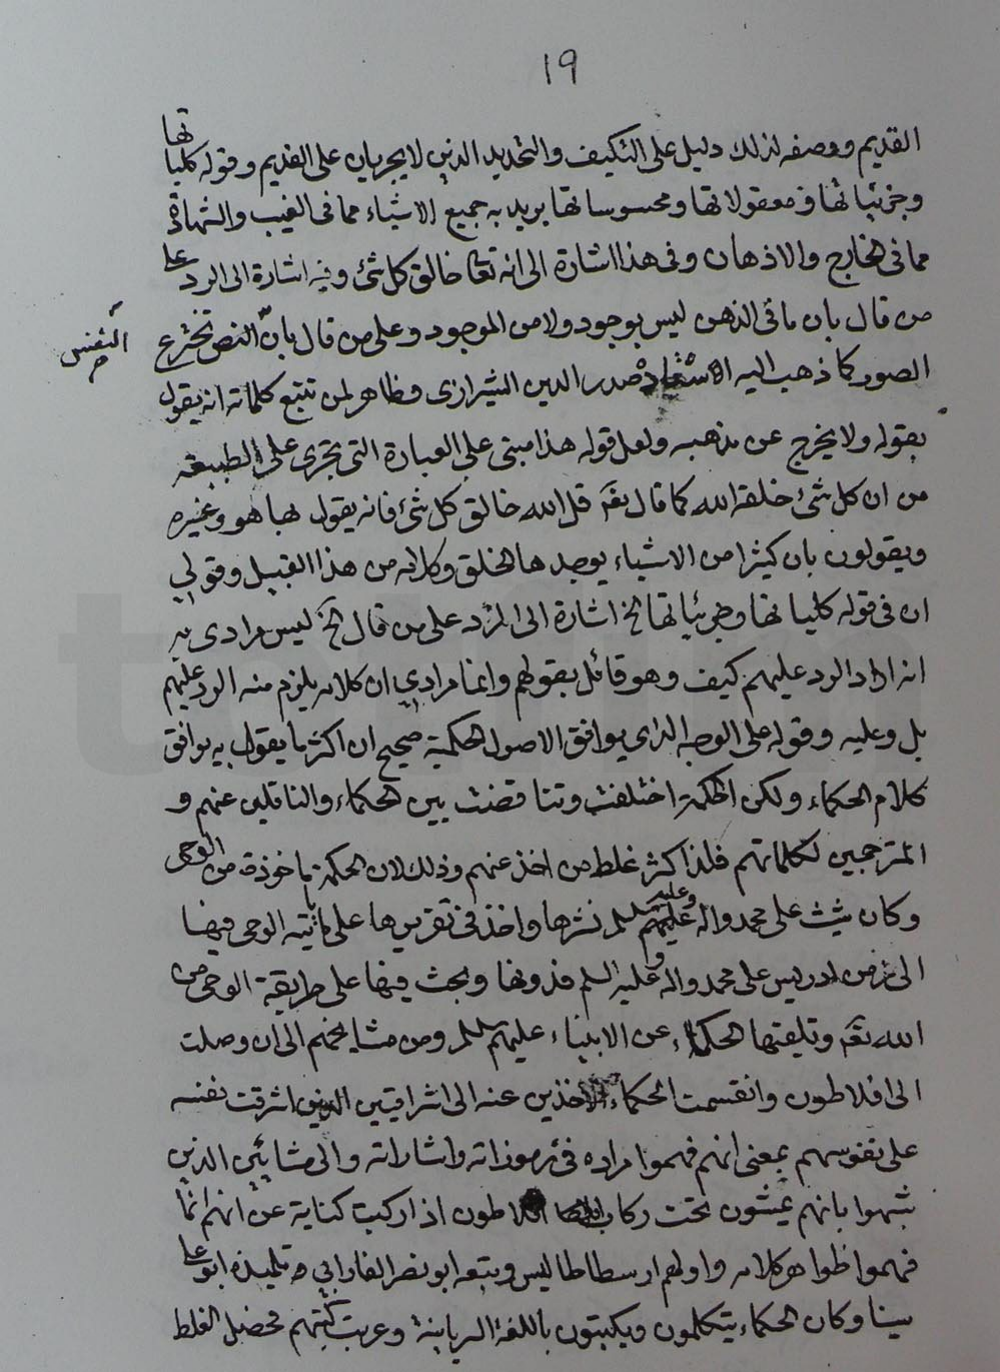 ١٩
القديم ووصفه لذلك دليل على التكيف والتحديد الذين لا يجريان على القديم وقوله كلياتها
وجزئياتها ومعقولاتها ومحسوساتها يريد به جميع الاشياء مما فى الغيب والشهادة
مما فى الخارج والاذهان وفى هذا اشارة الى انه تعا خالق كل شئ وفيه اشارة الى الرد على
من قال بان ما فى الذهن ليس بوجود ولا من الموجود وعلى من قال بان النص تخترع
النفس
الصور كما ذهب اليه الاستاد صدر الدين الشيرازى وظاهر لمن تتبع كلماته انه يقول
بقوله ولا يخرج عن مذهبه ولعل قوله هذا مبنى على العبارة التى تجرى على الطبيعة
من ان كل شئ خلقه الله كما قال تعم قل الله خالق كل شئ فانه يقول بها هو وغيره
ويقولون بان كثيرا من الاشياء يوجدها الخلق وكلامه من هذا القبيل وقولي
ان فى قوله كلياتها وجزئياتها الخ اشارة الى الرد على من قال الخ ليس مرادى به
انه اراد الرد عليهم كيف وهو قائل بقولهم وانما مرادي ان كلامه يلزم منه الرد عليهم
بل وعليه وقوله على الوجه الذى يوافق الاصول الحكمية صحيح ان اكثر ما يقول به يوافق
كلام الحكماء ولكن الحكمة اختلفت وتناقضت بين الحكماء والناقلين عنهم و
المترجمين لكلماتهم فلذا كثر غلط من اخذ عنهم وذلك لان الحكمة ماخوذة من الوحى
وكان شيث على محمد واله وعليه السلم نشرها واخذ فى تقريرها على ما ياتيه الوحى فيها
الى زمن ادريس على محمد واله وعليه السلم فدونها وبحث فيها على طريقة الوحى من
الله تعم وتلقتها الحكماء عن الانبياء عليهم السلم ومن مشايخهم الى ان وصلت
الى افلاطون وانقسمت الحكماء الاخذين عنه الى اشراقيين الذين اشرقت نفسه
على نفوسهم بمعنى انهم فهموا مراده فى رموزاته واشاراته والى مشائين الذين
شبهوا بانهم يمشون تحت ركاب افلاطون اذا ركب كناية عن انهم انما
فهموا ظواهر كلامه واولهم ارسطاطاليس وتبعه ابو نصر الفارابي وتلميذه ابو على
سينا وكان الحكماء يتكلمون ويكتبون باللغة السريانية وعربت كتبهم فحصل الغلط